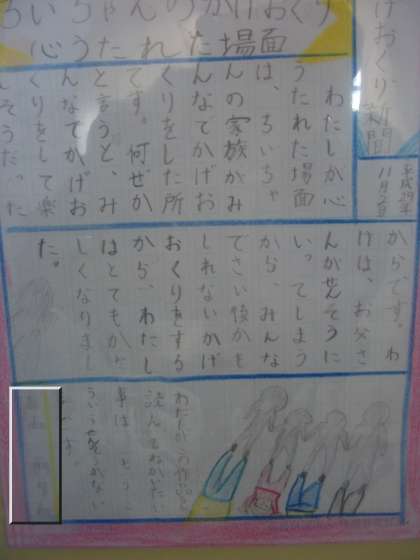 ちいちゃんのかげおくり
心うたれた場面
かげおくり新聞
平成29年
11月2日
わたしが心
うたれた場面
は、ちいちゃ
んの家族がみ
んなでかげお
くりをした所
です。何ぜか
と言うと、み
んなでかげお
くりをして楽
しそうだった
からです。わ
けは、お父さ
んがせんそうに
いってしまう
から、みんな
でさい後かも
しれないかげ
おくりをする
から、わたし
はとてもかな
しくなりまし
た。
わたしがこの作品を
読んでねがいたい
事は